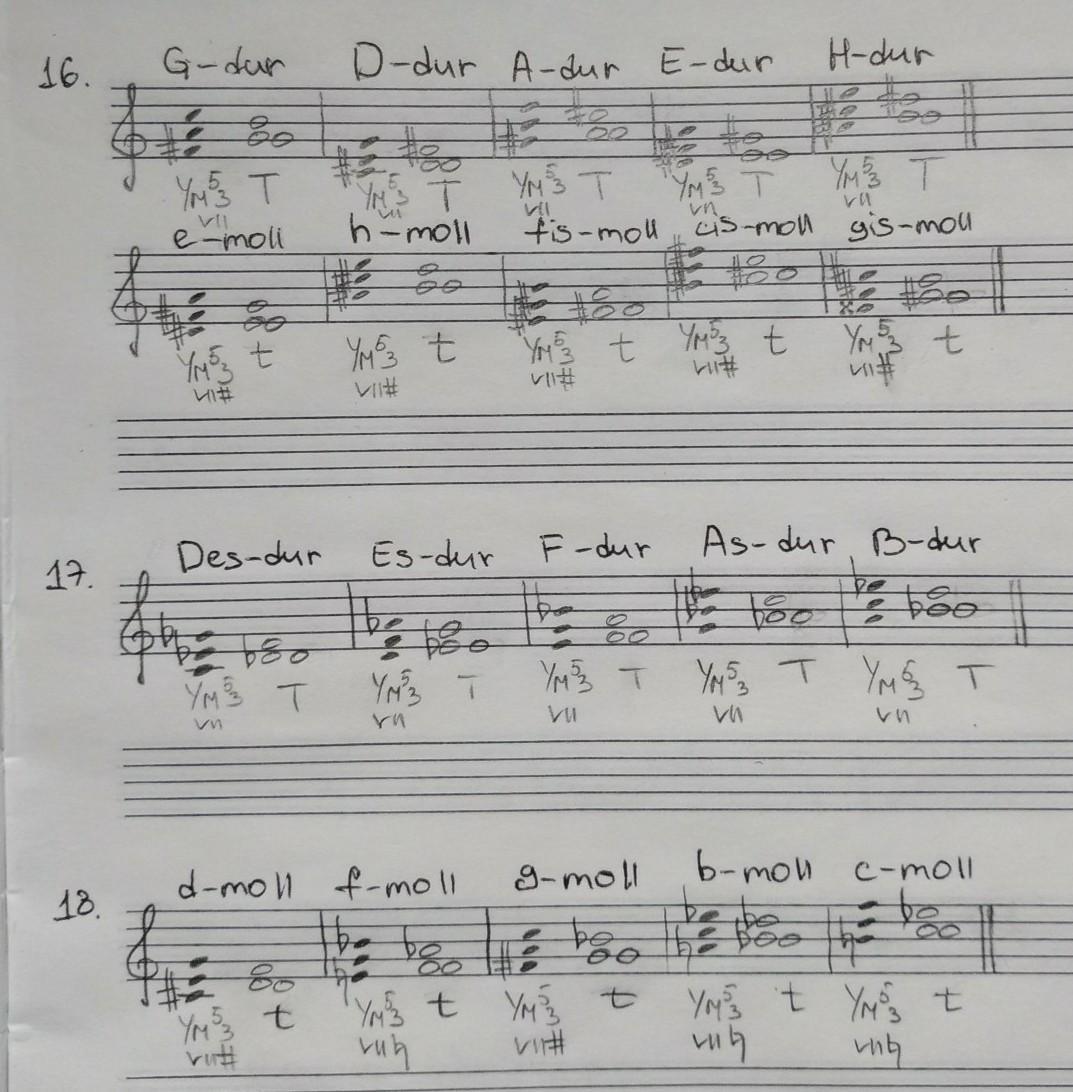 16. G-dur D-dur A-dur E-dur H-dur
Ум⁵₃ T Ум⁵₃ T Ум⁵₃ T Ум⁵₃ T Ум⁵₃ T
VII VII VII VII VII
e-moll h-moll fis-moll cis-moll gis-moll
Ум⁵₃ t Ум⁵₃ t Ум⁵₃ t Ум⁵₃ t Ум⁵₃ t
VII# VII# VII# VII# VII#
17. Des-dur Es-dur F-dur As-dur, B-dur
Ум⁵₃ T Ум⁵₃ T Ум⁵₃ T Ум⁵₃ T Ум⁵₃ T
VII VII VII VII VII
18. d-moll f-moll g-moll b-moll c-moll
Ум⁵₃ t Ум⁵₃ t Ум⁵₃ t Ум⁵₃ t Ум⁵₃ t
VII# VII♮ VII# VII♮ VII♮